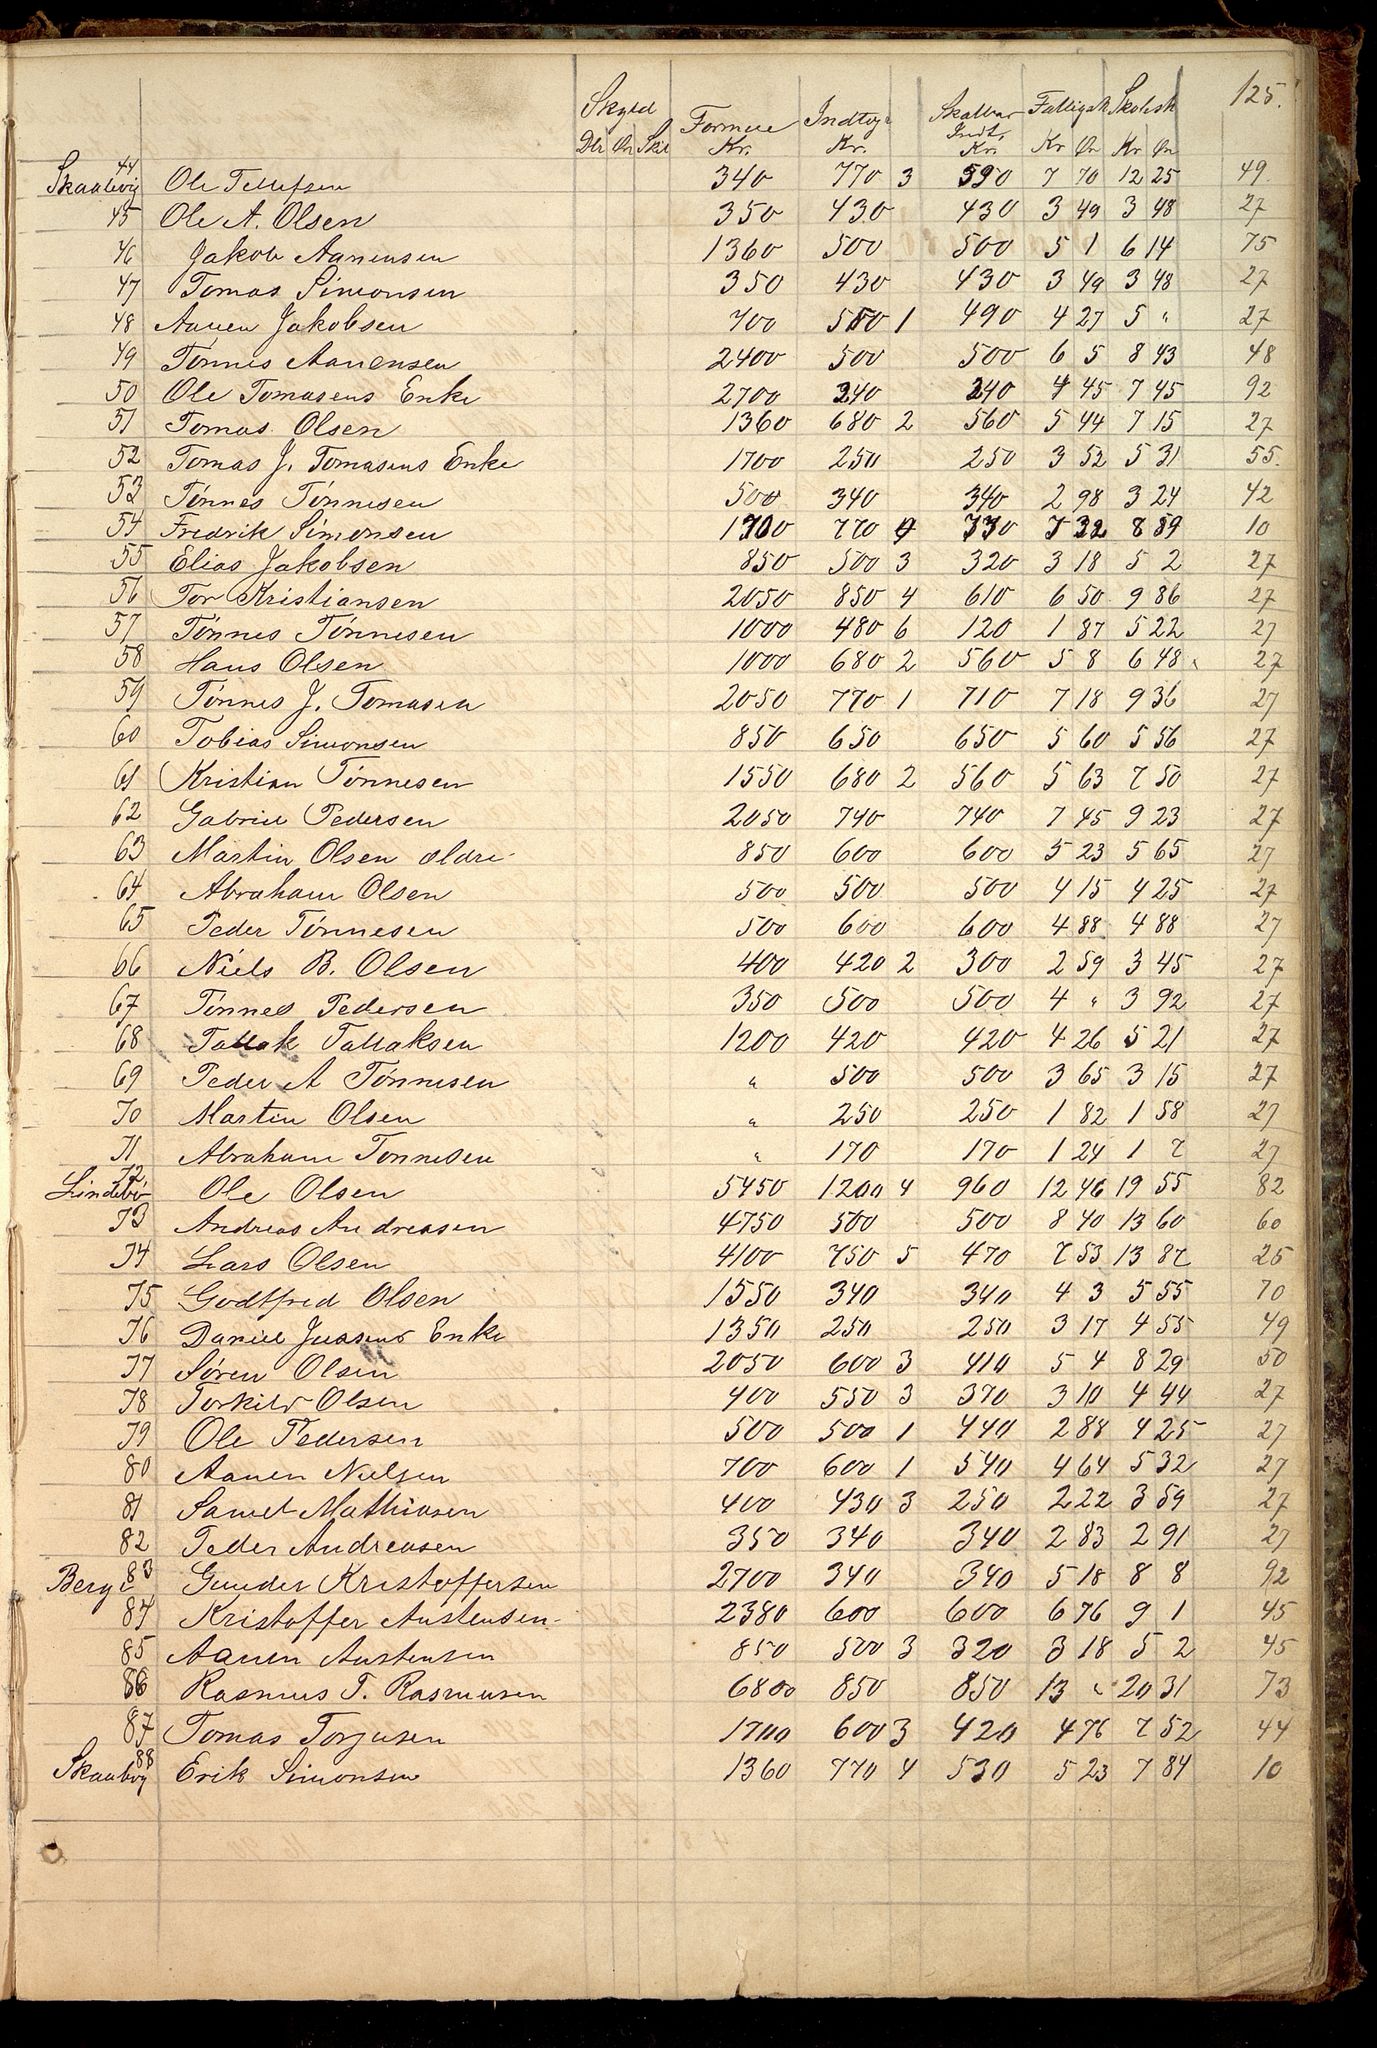 125.
Skyld Formue Indtægt Skatbar Fattigsk Skolesk
Indt.
Dlr Ort Skil Kr. Kr. Kr. Kr Ør Kr Ør
44
Skaalevig Ole Tellefsen 340 770 3 590 7 70 12 25 49
45 Ole A. Olsen 350 430 430 3 49 3 48 27
46 Jakob Aanensen 1360 500 500 5 1 6 14 75
47 Tomas Simonsen 350 430 430 3 49 3 48 27
48 Aanen Jakobsen 700 550 1 490 4 27 5 " 27
49 Tønnes Aanensen 2400 500 500 6 5 8 43 48
50 Ole Tomasens Enke 2700 240 240 4 45 7 45 92
51 Tomas Olsen 1360 680 2 560 5 44 7 15 27
52 Tomas J. Tomasens Enke 1700 250 250 3 52 5 31 55.
53 Tønnes Tønnesen 500 340 340 2 98 3 24 42
54 Fredrik Simonsen 1700 770 4 530 5 32 8 59 10
55 Elias Jakobsen 850 500 3 320 3 18 5 2 27
56 Tor Kristiansen 2050 850 4 610 6 50 9 86 27
57 Tønnes Tønnesen 1000 480 6 120 1 87 5 22 27
58 Hans Olsen 1000 680 2 560 5 8 6 48 27
59 Tønnes J. Tomasen 2050 770 1 710 7 18 9 36 27
60 Tobias Simonsen 850 650 650 5 60 5 56 27
61 Kristian Tønnesen 1550 680 2 560 5 63 7 50 27
62 Gabriel Pedersen 2050 740 740 7 45 9 23 27
63 Martin Olsen ældre 850 600 600 5 23 5 65 27
64 Abraham Olsen 500 500 500 4 15 4 25 27
65 Peder Tønnesen 500 600 600 4 88 4 88 27
66 Niels B. Olsen 400 420 2 300 2 59 3 45 27
67 Tønnes Pedersen 350 500 500 4 " 3 92 27
68 Tallak Tallaksen 1200 420 420 4 26 5 21 27
69 Peder A Tønnesen " 500 500 3 65 3 15 27
70 Martin Olsen " 250 250 1 82 1 58 27
71 Abraham Tønnesen " 170 170 1 24 1 7 27
72
Lindebø Ole Olsen 5450 1200 4 960 12 46 19 55 82
73 Andreas Andreasen 4750 500 500 8 40 13 60 60
74 Lars Olsen 4100 750 5 470 7 53 13 87 25
75 Godtfred Olsen 1550 340 340 4 3 5 55 70
76 Daniel Jensens Enke 1350 250 250 3 17 4 55 49
77 Søren Olsen 2050 600 3 410 5 4 8 29 50
78 Torkild Olsen 400 550 3 370 3 10 4 44 27
79 Ole Pedersen 500 500 1 440 2 88 4 25 27
80 Aanen Nielsen 700 600 1 540 4 64 5 32 27
81 Samuel Mathiasen 400 430 3 250 2 22 3 59 27
82 Peder Andreasen 350 340 340 2 83 2 91 27
83
Berge Gunder Kristoffersen 2700 340 340 5 18 8 8 92
84 Kristoffer Austensen 2380 600 600 6 76 9 1 45
85 Aanen Austensen 850 500 3 320 3 18 5 2 45
86 Rasmus T. Rasmusen 6800 850 850 13 " 20 31 73
87 Tomas Torjusen 1700 600 3 420 4 76 7 52 44
88
Skaalevig Erik Simonsen 1360 770 4 530 5 23 7 84 10